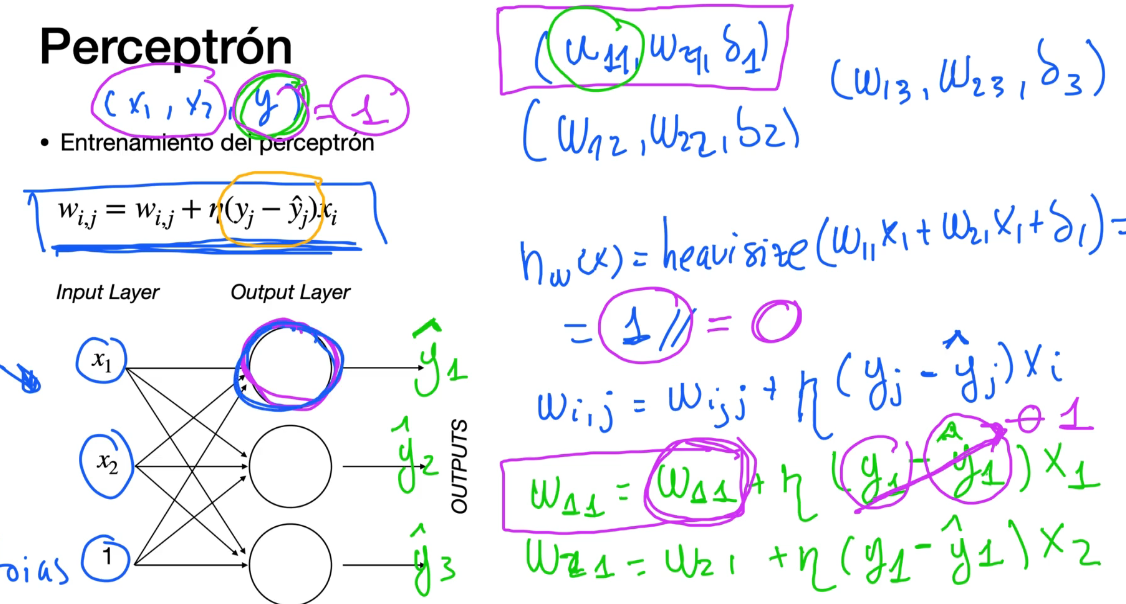 Perceptrón
(x₁, x₂, y) = 1
• Entrenamiento del perceptrón
wᵢ,ⱼ = wᵢ,ⱼ + η(yⱼ − ŷⱼ)xᵢ
Input Layer Output Layer
x₁ ŷ1
x₂ ŷ2
bias 1 ŷ3
OUTPUTS
(w11, w21, b1)
(w13, w23, b3)
(w12, w22, b2)
hw(x) = heavisize(w11 x1 + w21 x1 + b1) =
= 1 // = 0
wi,j = wi,j + η(yj − ŷj)xi
0 1
w11 = w11 + η(y1 − ŷ1)x1
w21 = w21 + η(y1 − ŷ1)x2